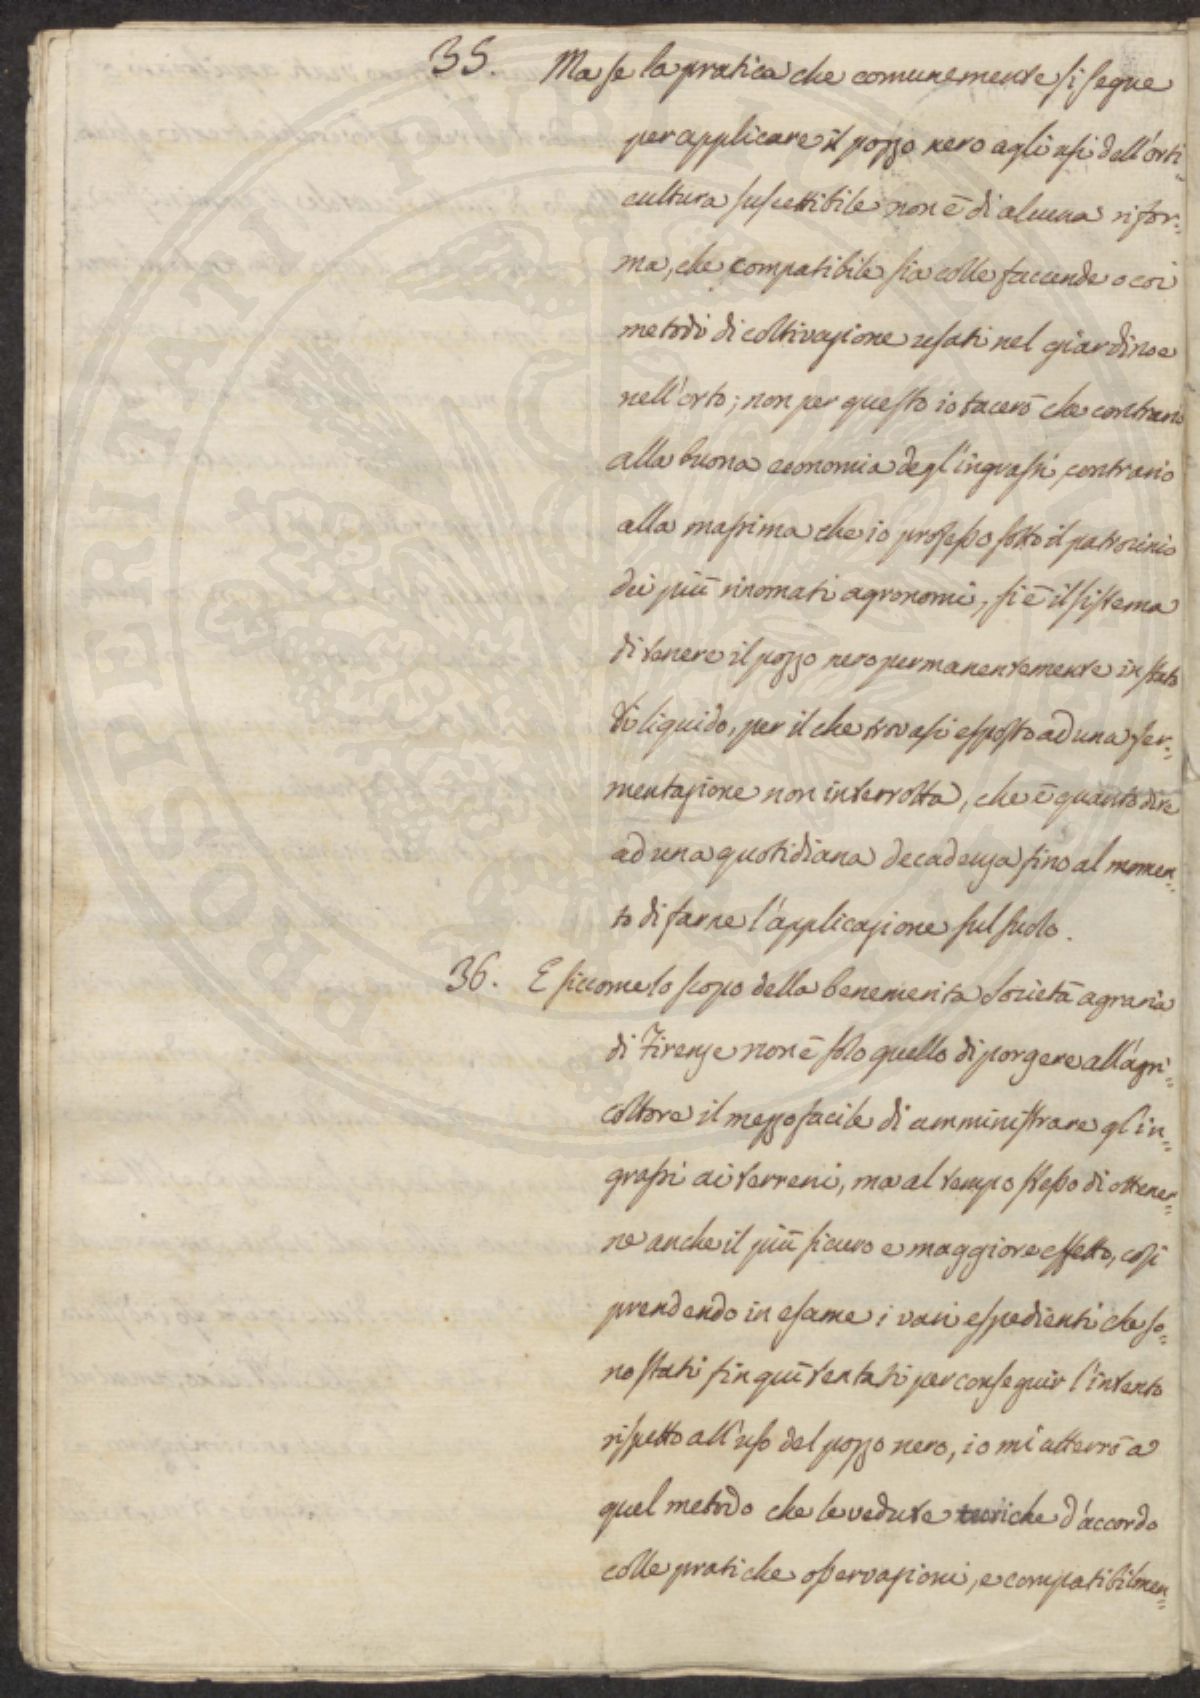 35. Ma se la pratica che comunemente si segue
per applicare il pozzo nero agli usi dell'orti=
cultura suscettibile non è di alcuna rifor=
ma, che compatibile sia colle faccende o coi
metodi di coltivazione usati nel giardino e
nell'orto; non per questo io tacerò che contrario
alla buona economia degl'ingrassi, contrario
alla massima che io professo sotto il patrocinio
dei più rinomati agronomi, si è il sistema
di tenere il pozzo nero permanentemente in stato
di liquido, per il che trovasi esposto ad una fer=
mentazione non interrotta, che è quanto dire
ad una quotidiana decadenza fino al momen=
to di farne l'applicazione sul suolo.
36. E siccome lo scopo della benemerita Società agraria
di Firenze non è solo quello di porgere all'agri=
coltore il mezzo facile di amministrare gl'in=
grassi ai terreni, ma al tempo stesso di ottener=
ne anche il più sicuro e maggiore effetto, così
prendendo in esame i vari espedienti che so=
no stati fin quì tentati per conseguir l'intento
rispetto all'uso del pozzo nero, io mi atterrò a
quel metodo che le vedute teoriche d'accordo
colle pratiche osservazioni, e compatibilmen=
PROSPERITATI PUBLICAE AUGENDAE